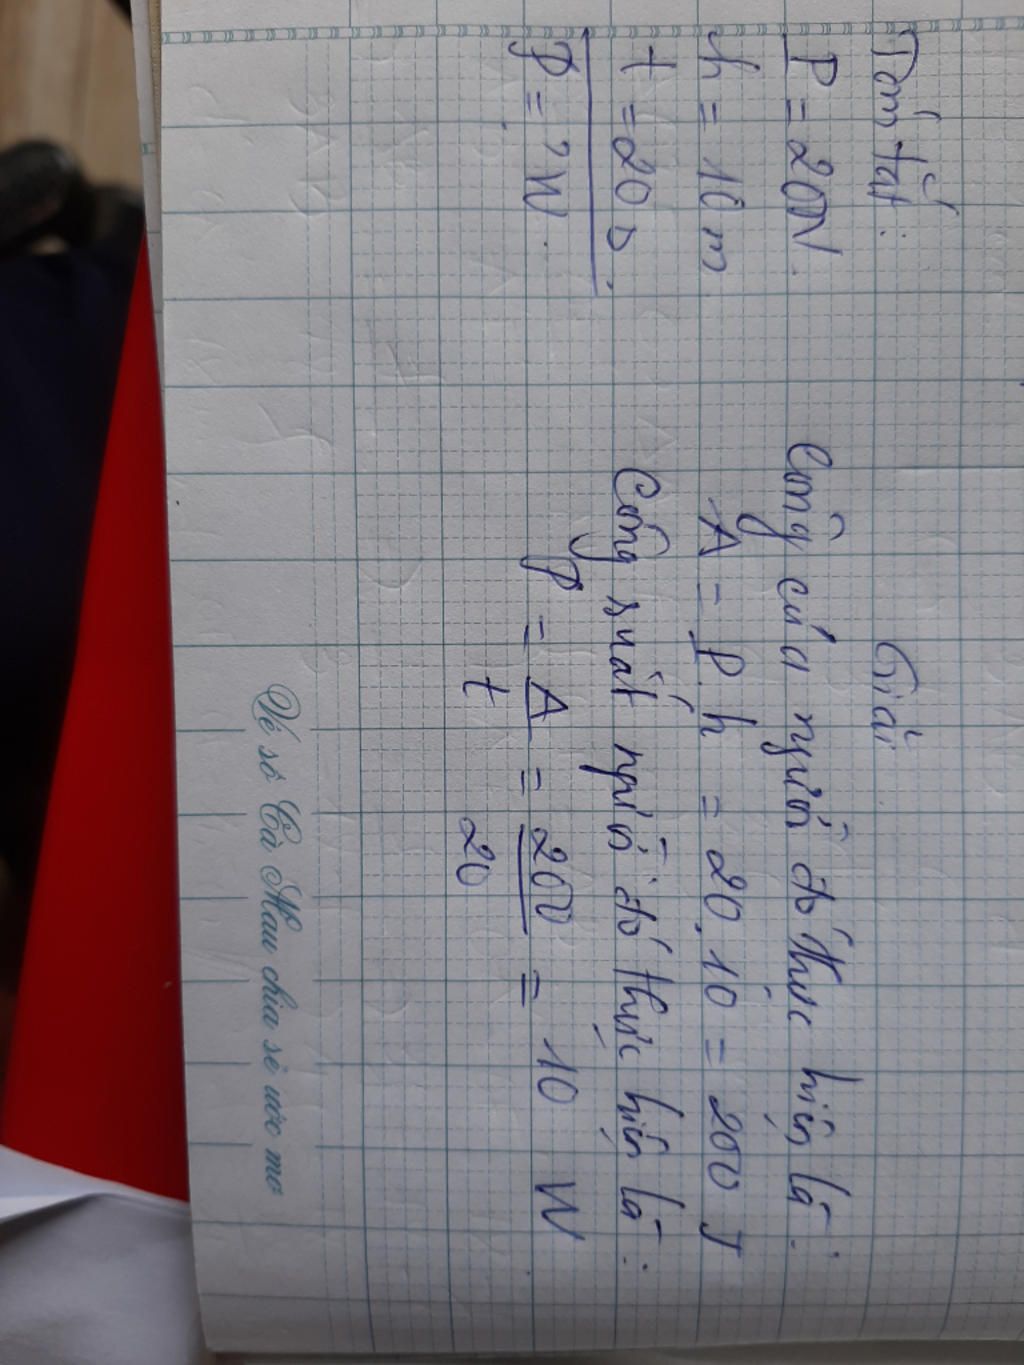 Tóm tắt:
P = 20N.
h = 10 m
t = 20 s.
℘ = ? W.
Giải
Công của người đó thực hiện là:
A = P. h = 20.10 = 200 J
Công suất người đó thực hiện là:
℘ = A/t = 200/20 = 10 W
Vé số Cà Mau chia sẻ ước mơ